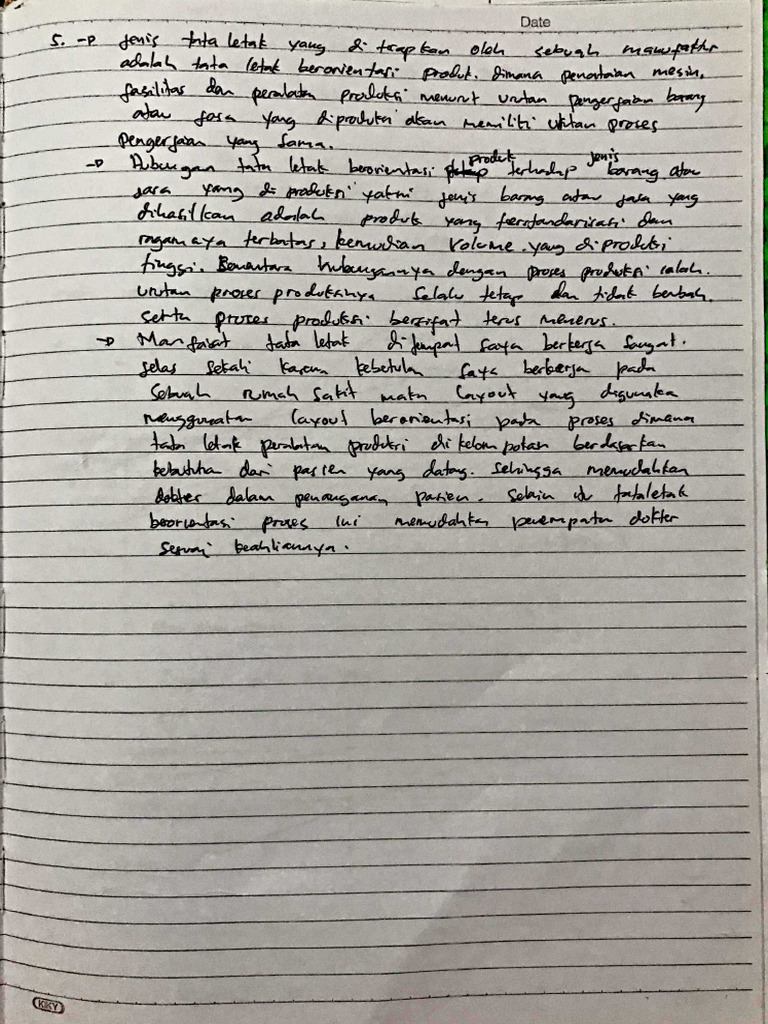 Date
5. → Jenis tata letak yang di terapkan oleh sebuah manufaktur
adalah tata letak berorientasi produk. dimana penataan mesin,
fasilitas dan peralatan produksi menurut urutan pengerjaan barang
atau jasa yang diproduksi akan memiliki urutan proses
pengerjaan yang sama.
→ Hubungan tata letak berorientasi produk terhadap jenis barang atau
jasa yang di produksi yakni jenis barang atau jasa yang
dihasilkan adalah produk yang terstandarisasi dan
ragamnya terbatas, kemudian volume yang diproduksi
tinggi. Sementara hubungannya dengan proses produksi ialah.
urutan proses produksinya selalu tetap dan tidak berubah.
serta proses produksi bersifat terus menerus.
→ Manfaat tata letak di tempat saya berkerja sangat.
jelas sekali karena kebetulan saya berkerja pada
sebuah rumah sakit maka layout yang digunakan
menggunakan layout berorientasi pada proses dimana
tata letak peralatan produksi di kelompokan berdasarkan
kebutuhan dari pasien yang datang. Sehingga memudahkan
dokter dalam penanganan pasien. Selain itu tataletak
berorientasi proses ini memudahkan penempatan dokter
sesuai keahliannya.
KKY